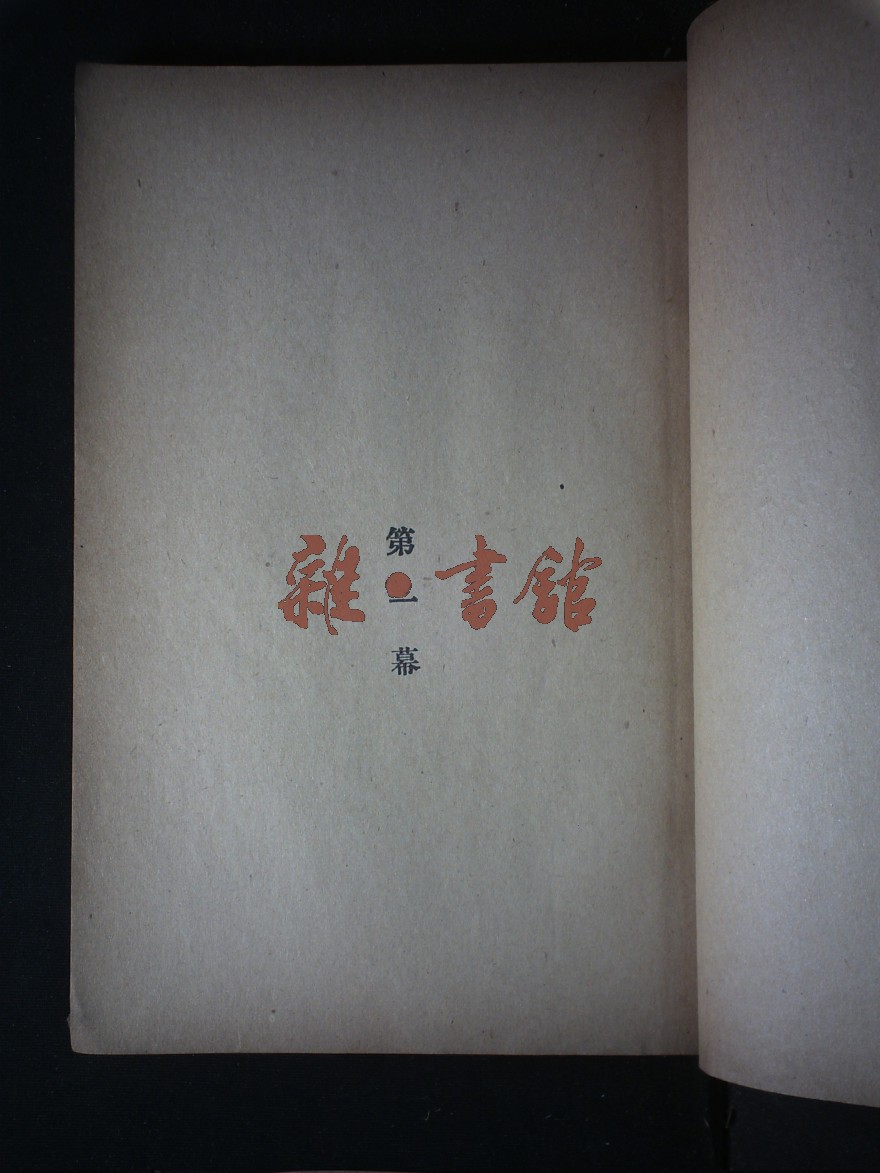 第一幕
雜·書館